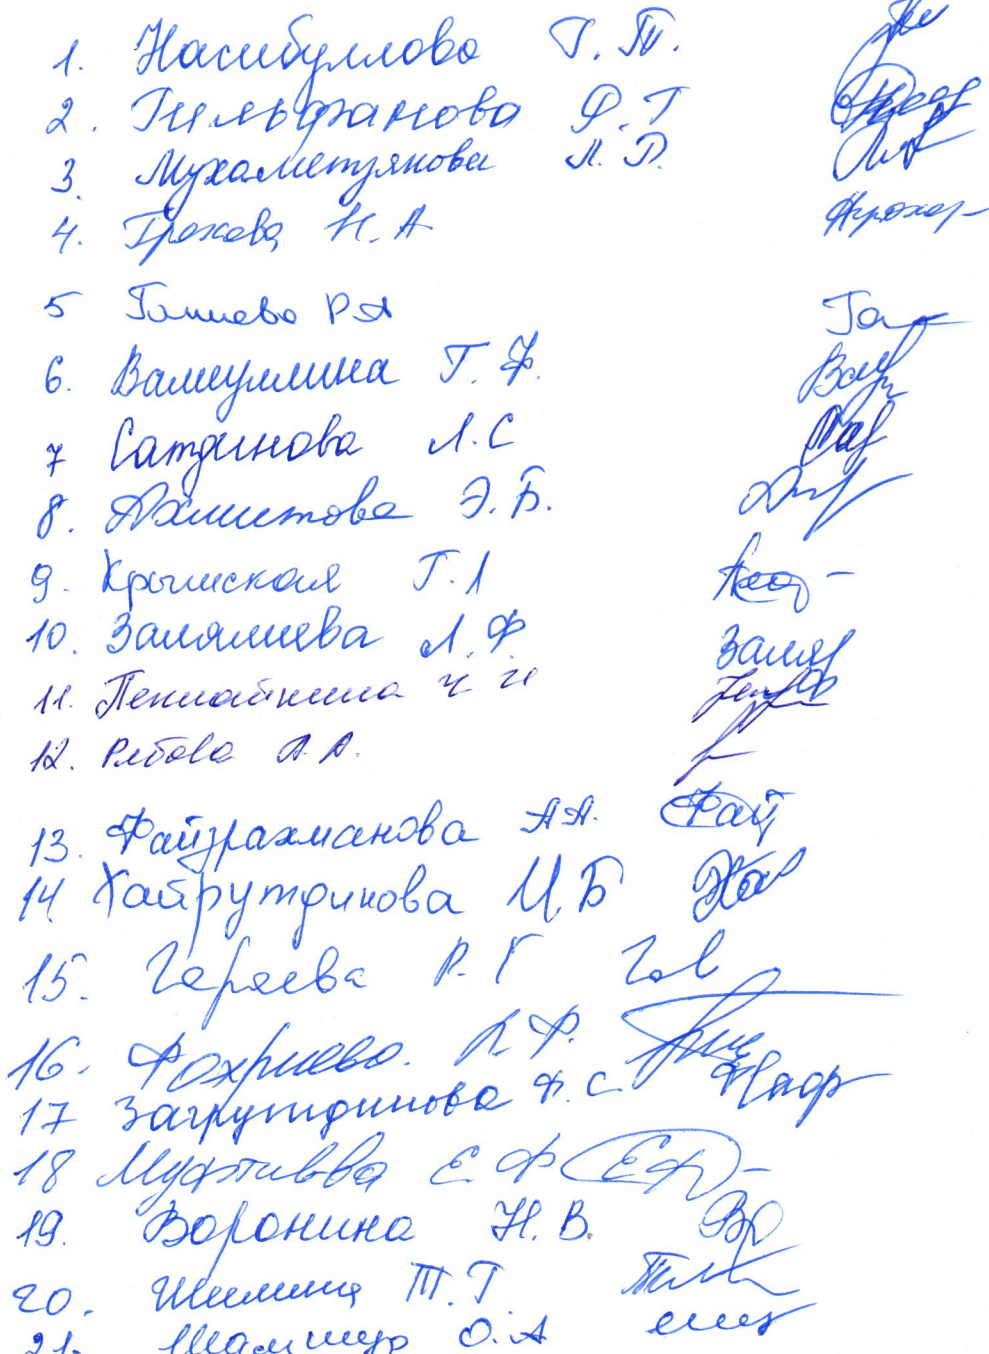 1. Насибуллова Г. Т.
2. Гильфанова Ф. Г
3. Мухаметзянова Л. Р.
4. Грохова Н. А
5 Ганиева Р А
6. Валиуллина Г. Ф.
7 Сатдинова Л. С
8. Ахметова Э. Б.
9. Крымская Г. Л
10. Залялиева Л. Ф.
11. Ч. И
12. Рябова А. А.
13. Файзрахманова А А.
14. Хайрутдинова И. Б
15. Гараева Р. Г
16. Фахриева. Ф.
17 Загрутдинова С.
18 Муфтиева Е. Ф
19. Воронина Н. В.
20. Шилина Т. Г.
21. О. А